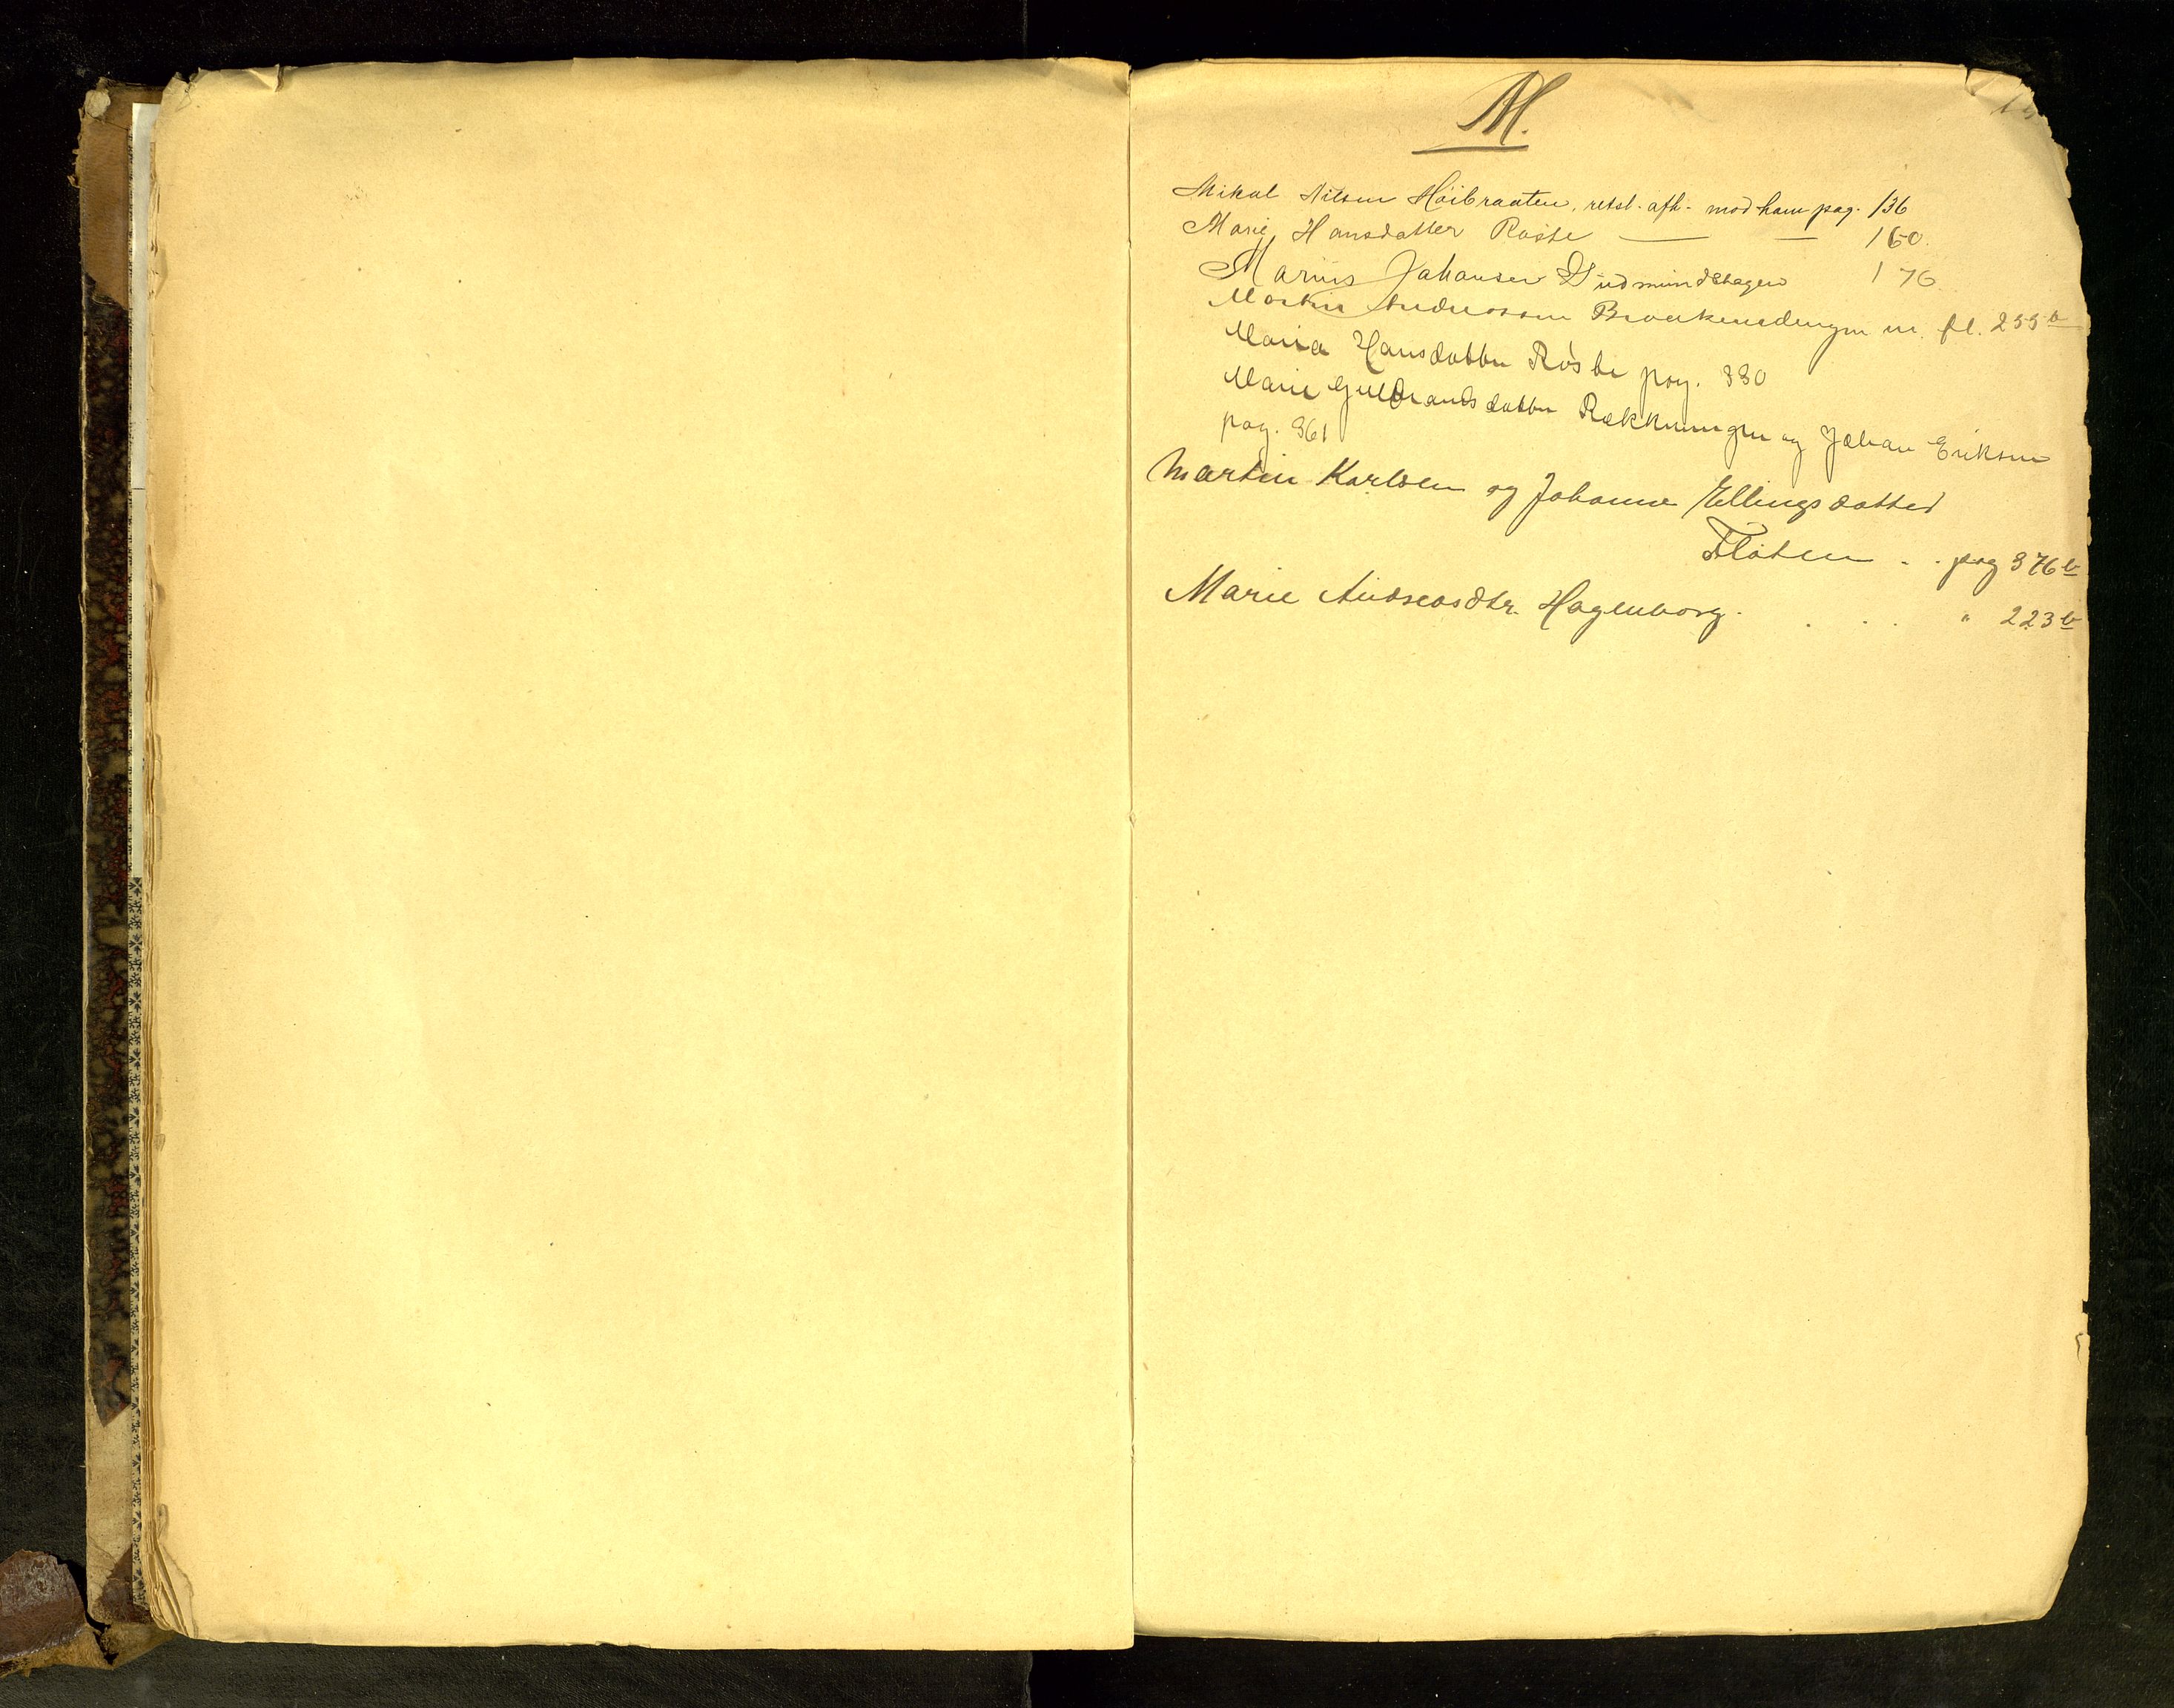 M.
Mikal Nilsen Höibraaten, retsl. afh. mod ham pag. 136
Marie Hansdatter Røste — — 160.
Marius Johansen Gudmundshagen 176
Martin Andreassen m. fl. 255 b
Maria Hansdatter Røste pag. 330
Marie Gulbrandsdatter Rækkningen og Johan Eriksen
pag. 361
Martin Karlsen og Johanne Ellingsdatter
Fløten . . pag 376 b
Marie Andreasdtr. Hagenborg . . . . " 223 b